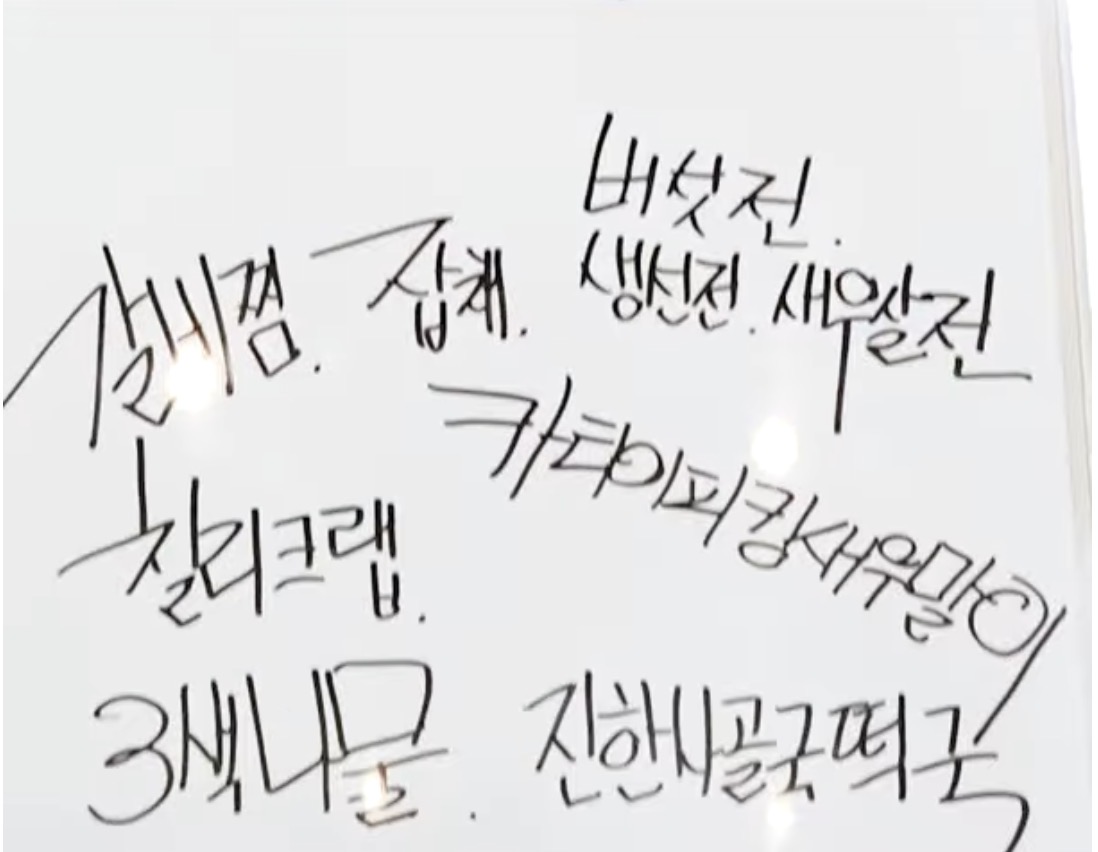 버섯전.
갈비찜. 잡채. 생선전. 새우살전
카다이피 킹새우말이
칠리크랩.
3색나물. 진한사골국떡국